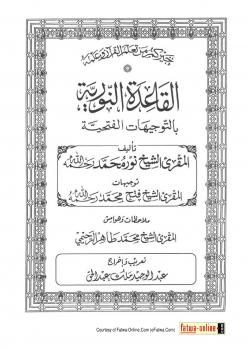 خيركم من تعلم القرآن وعلمه
القاعدة النورية
بالتوجيهات الفتحية
تأليف
المقرئ الشيخ نور محمد رحمه الله
توجيهات
المقرئ الشيخ فتح محمد رحمه الله
ملاحظات وهوامش
المقرئ الشيخ محمد طاهر الرحيمي
تعريب وإخراج
Courtesy of Fatwa-Online.Com (eFatwa.Com)
fatwa-online